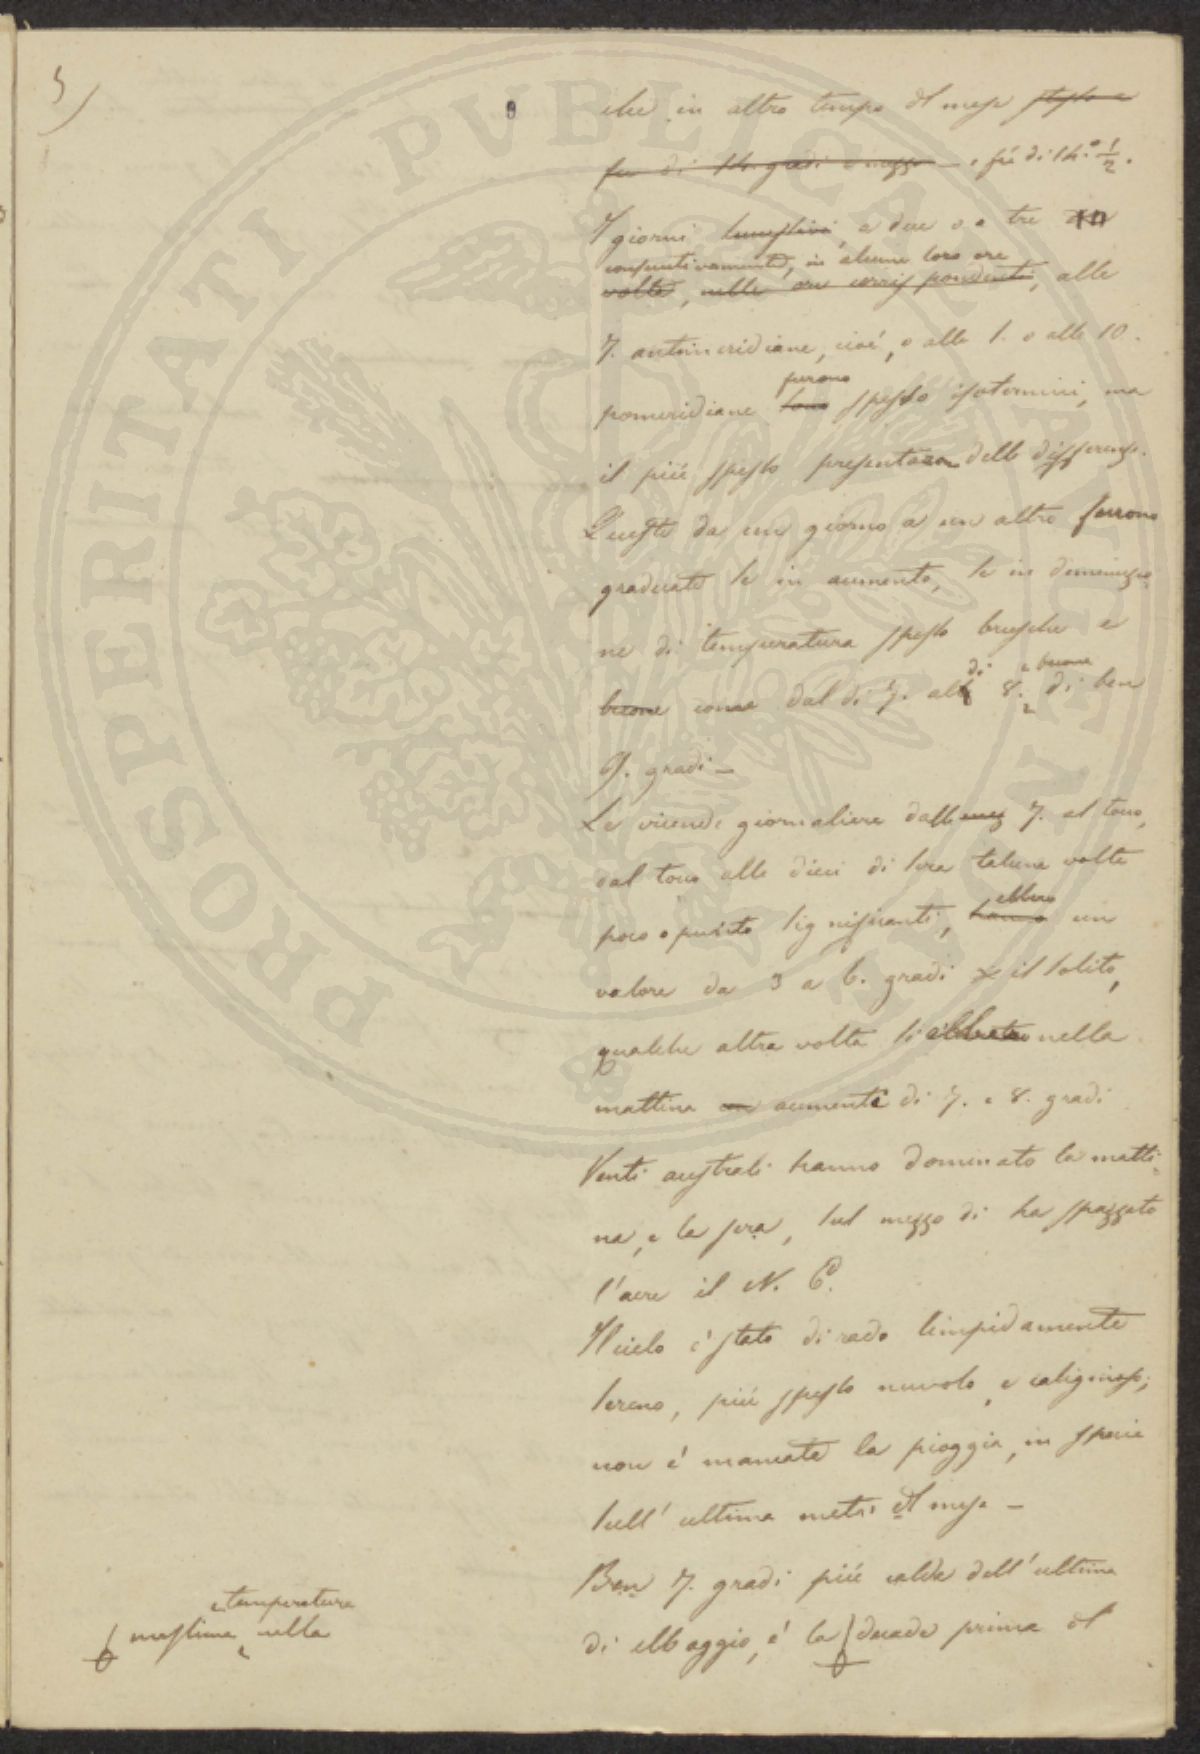 5)
8
che in altro tempo del mese stesso e
fu di 14. gradi e mezzo, e fú di 14.° ½.
I giorni a due o a tre
consecutivamente, in alcune loro ore
volte, nelle ore corrispondenti, alle
7. antimeridiane, cioé, o alle 1. o alle 10.
furono
pomeridiane sono spesso isotermini, ma
il piú spesso presentaron delle differenze.
Queste da un giorno a un altro furono
graduate se in aumento, se in diminuzio-
ne di temperatura spesso brusche e
di e buone
buone come dal di 7. al 8. di ben
9. gradi —
Le vicende giornaliere dalle 7. al toco,
dal toco alle dieci di sera talune volte
ebbero
poco o punto significanti, hanno un
valore da 3 a 6. gradi x il solito,
qualche altra volta si nella
mattina un aumenti di 7. e 8. gradi
Venti australi hanno dominato la matti-
na, e la sera, sul mezzo di ha spazzato
l'aere il N. E.
Il cielo é stato di rado limpidamente
sereno, piú spesso nuvolo, e caliginoso;
non é mancata la pioggia, in specie
sull'ultima metá del mese —
Ben 7. gradi piú calda dell'ultima
di Maggio, é la decade prima del
e temperatura
massima nella
PROSPERITATI PVBLICAE AVGENDAE